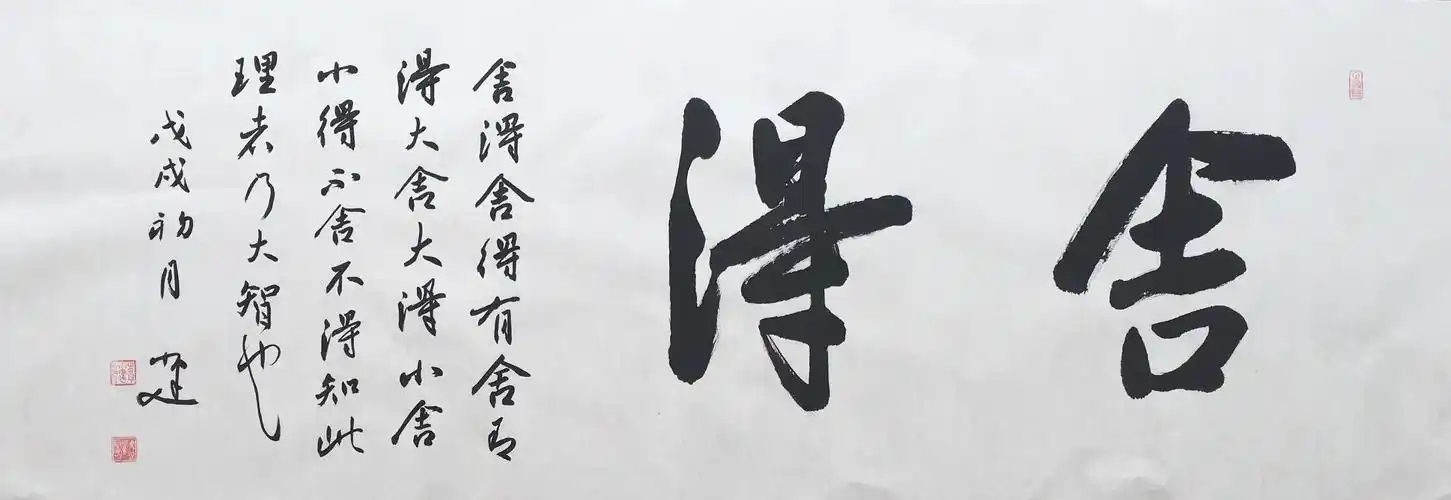 舍得
舍得舍得有舍有
得大舍大得小舍
小得不舍不得知此
理者乃大智也
戊戌初月